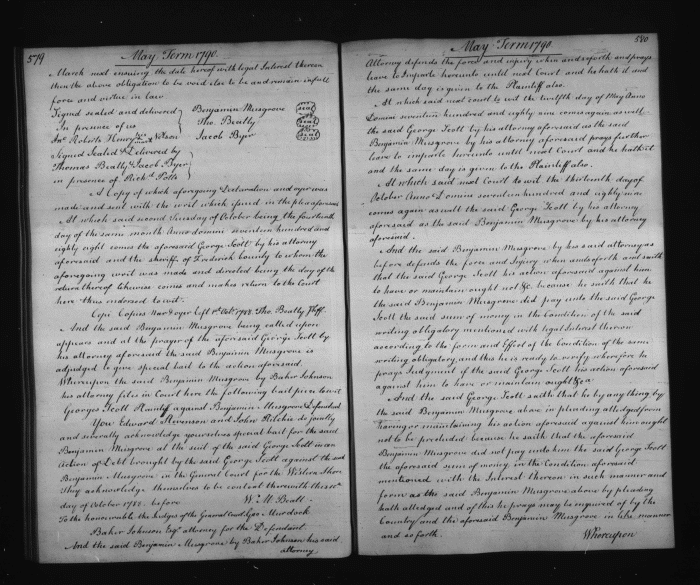 579
May Term 1790
March next ensuing the date hereof with legal Interest thereon
then the above obligation to be void else to be and remain in full
force and virtue in law
Signed sealed and delivered
In presence of us
Jno. Roberts Henry Wilson
Benjamin Musgrove seal
Tho. Beatty seal
Jacob Byer seal
Signed Sealed & Delivered by
Thomas Beatty & Jacob Byer
in presence of Richd. Potts
A Copy of which aforegoing Declaration and oyer was
made and sent with the writ which issued in the plea aforesaid
At which said second Tuesday of October being the fourteenth
day of the same month Anno Domini seventeen hundred and
eighty eight comes the aforesaid George Scott by his attorney
aforesaid and the sheriff of Frederick County to whom the
aforegoing writ was made and directed being the day of the
return thereof likewise comes and makes return to the Court
here thus endorsed to wit.
Cepi Copies Narr & oyer left 1st Octr. 1788. Tho. Beatty Shff.
And the said Benjamin Musgrove being called upon
appears and at the prayer of the aforesaid George Scott by
his attorney aforesaid the said Benjamin Musgrove is
adjudged to give special bail to the action aforesaid
Whereupon the said Benjamin Musgrove by Baker Johnson
his attorney files in Court here the following bail piece to wit
George Scott Plaintiff against Benjamin Musgrove Defendant
You Edward Stevenson and John Ritchie do jointly
and severally acknowledge yourselves special bail for the said
Benjamin Musgrove at the suit of the said George Scott in an
action of Debt brought by the said George Scott against the said
Benjamin Musgrove in the General Court for the Western Shore
They acknowledge themselves to be content therewith this
day of October 1788. before
Wm. M. Beall
To the honourable the Judges of the General Court Geo. Murdock
Baker Johnson Esqr. attorney for the Defendant
And the said Benjamin Musgrove by Baker Johnson his said
attorney
580
May Term 1790
Attorney defends the force and injury when and so forth and prays
leave to Imparle hereunto until next Court and he hath it and
the same day is given to the Plaintiff also.
At which said next Court to wit the twelfth day of May Anno
Domini seventeen hundred and eighty nine comes again as well
the said George Scott by his attorney aforesaid as the said
Benjamin Musgrove by his attorney aforesaid prays further
leave to imparle hereunto until next Court and he hath it
and the same day is given to the Plaintiff also.
At which said next Court to wit the thirteenth day of
October Anno Domini seventeen hundred and eighty nine
comes again as well the said George Scott by his attorney
aforesaid as the said Benjamin Musgrove by his attorney
aforesaid.
And the said Benjamin Musgrove by his said attorney as
before defends the force and Injury when and so forth and saith
that the said George Scott his action aforesaid against him
to have or maintain ought not &c. because he saith that he
the said Benjamin Musgrove did pay unto the said George
Scott the said sum of money in the Condition of the said
writing obligatory mentioned with legal Interest thereon
according to the form and Effect of the Condition of the same
writing obligatory, and this he is ready to verify wherefore he
prays Judgment if the said George Scott his action aforesaid
against him to have or maintain ought &ca
And the said George Scott saith that he by any thing by
the said Benjamin Musgrove above in pleading alledged from
having or maintaining his action aforesaid against him ought
not to be precluded because he saith that the aforesaid
Benjamin Musgrove did not pay unto him the said George Scott
the aforesaid sum of money in the Condition aforesaid
mentioned with the Interest thereon in such manner and
form as the said Benjamin Musgrove above by pleading
hath alledged and of this he prays may be inquired of by the
Country and the aforesaid Benjamin Musgrove in like manner
and so forth.
Whereupon